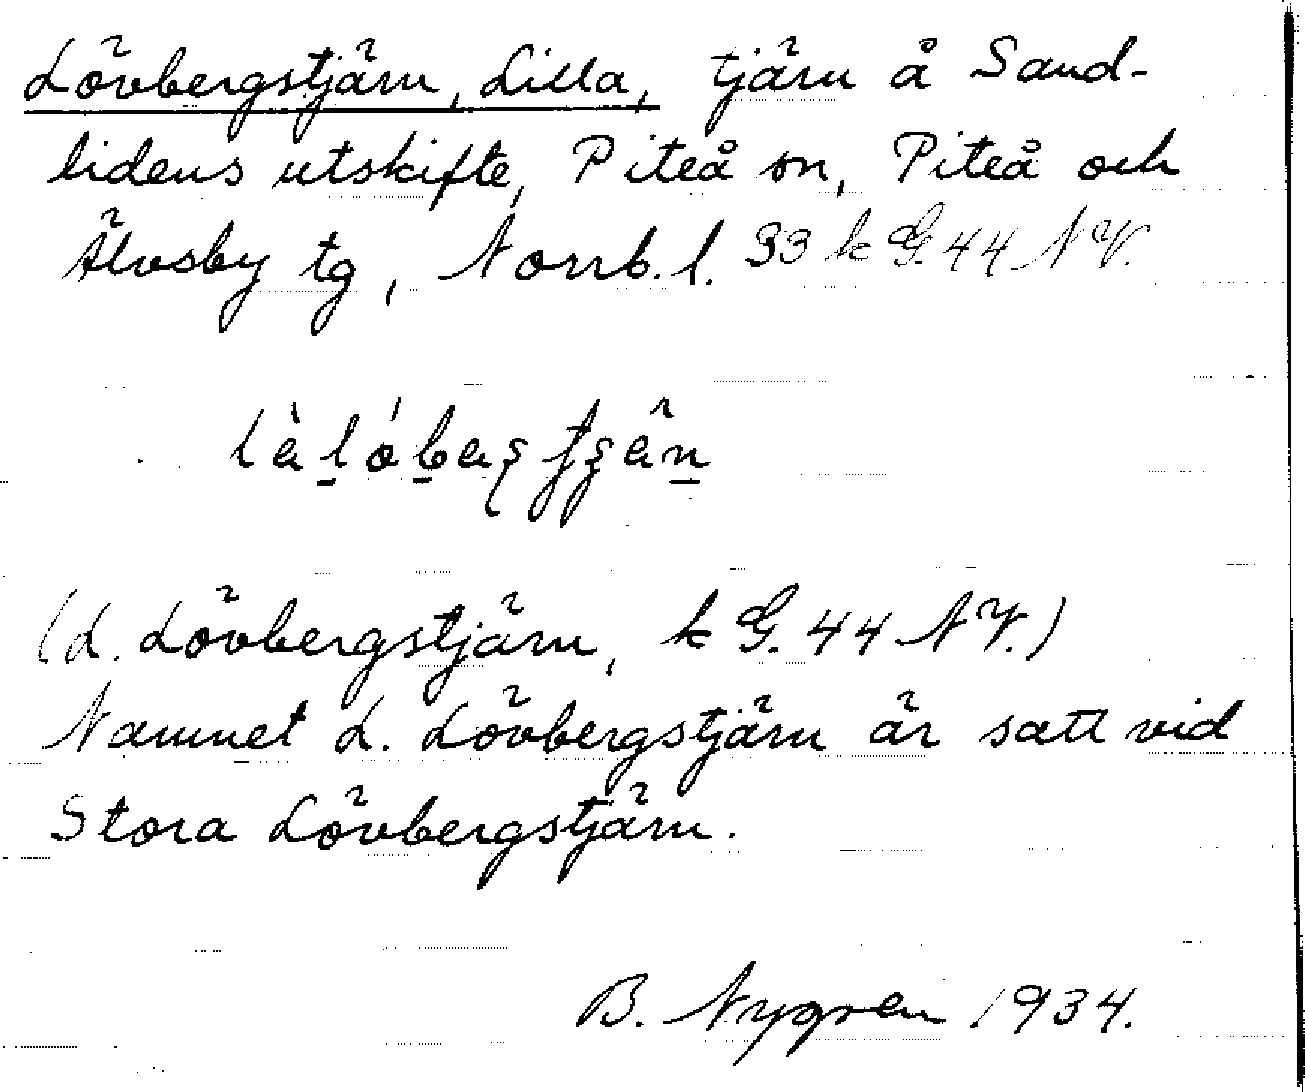 Lövbergstjärn, Lilla, tjärn å Sand-
lidens utskifte, Piteå sn, Piteå och
Älvsby tg, Norrb. l. 33 k G. 44 NV.
(L. Lövbergstjärn, k G. 44 NV.)
Namnet L. Lövbergstjärn är satt vid
Stora Lövbergstjärn.
B. Nygren 1934.